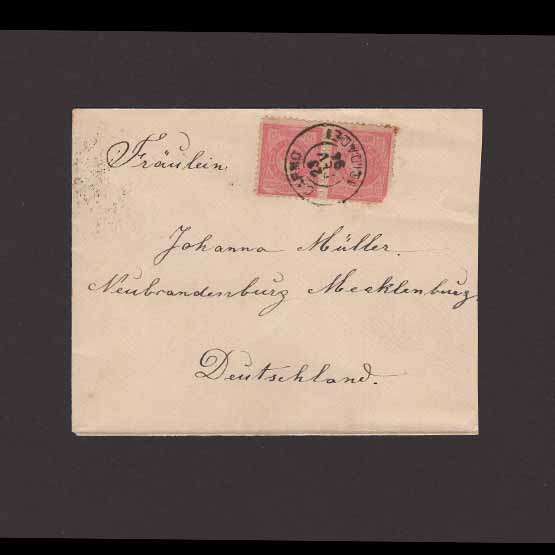 Fräulein
Johanna Müller.
Neubrandenburg Mecklenburg
Deutschland.
23